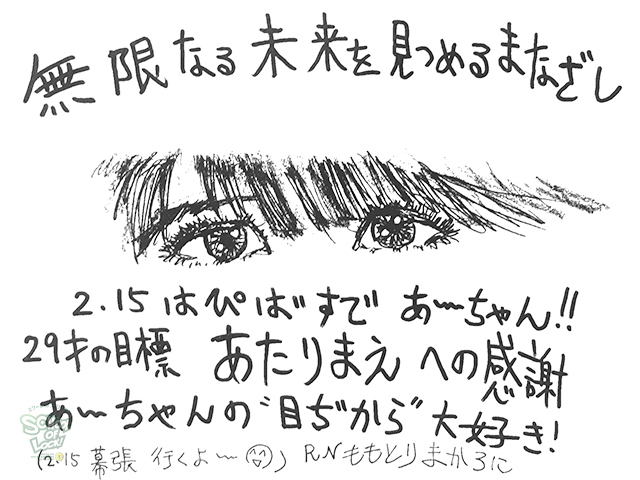 無限なる未来を見つめるまなざし
2.15 はぴばすであ〜ちゃん!!
29才の目標 あたりまえへの感謝
あ〜ちゃんの"目ぢから"大好き!
(2.15 幕張 行くよ〜) RN ももとりまかろに
SCHOOL OF LOCK!